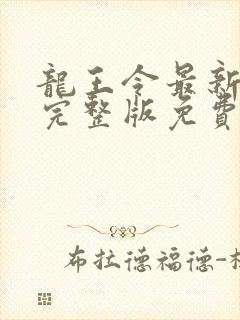 龍王令最新
完整版免費
布拉德福德-